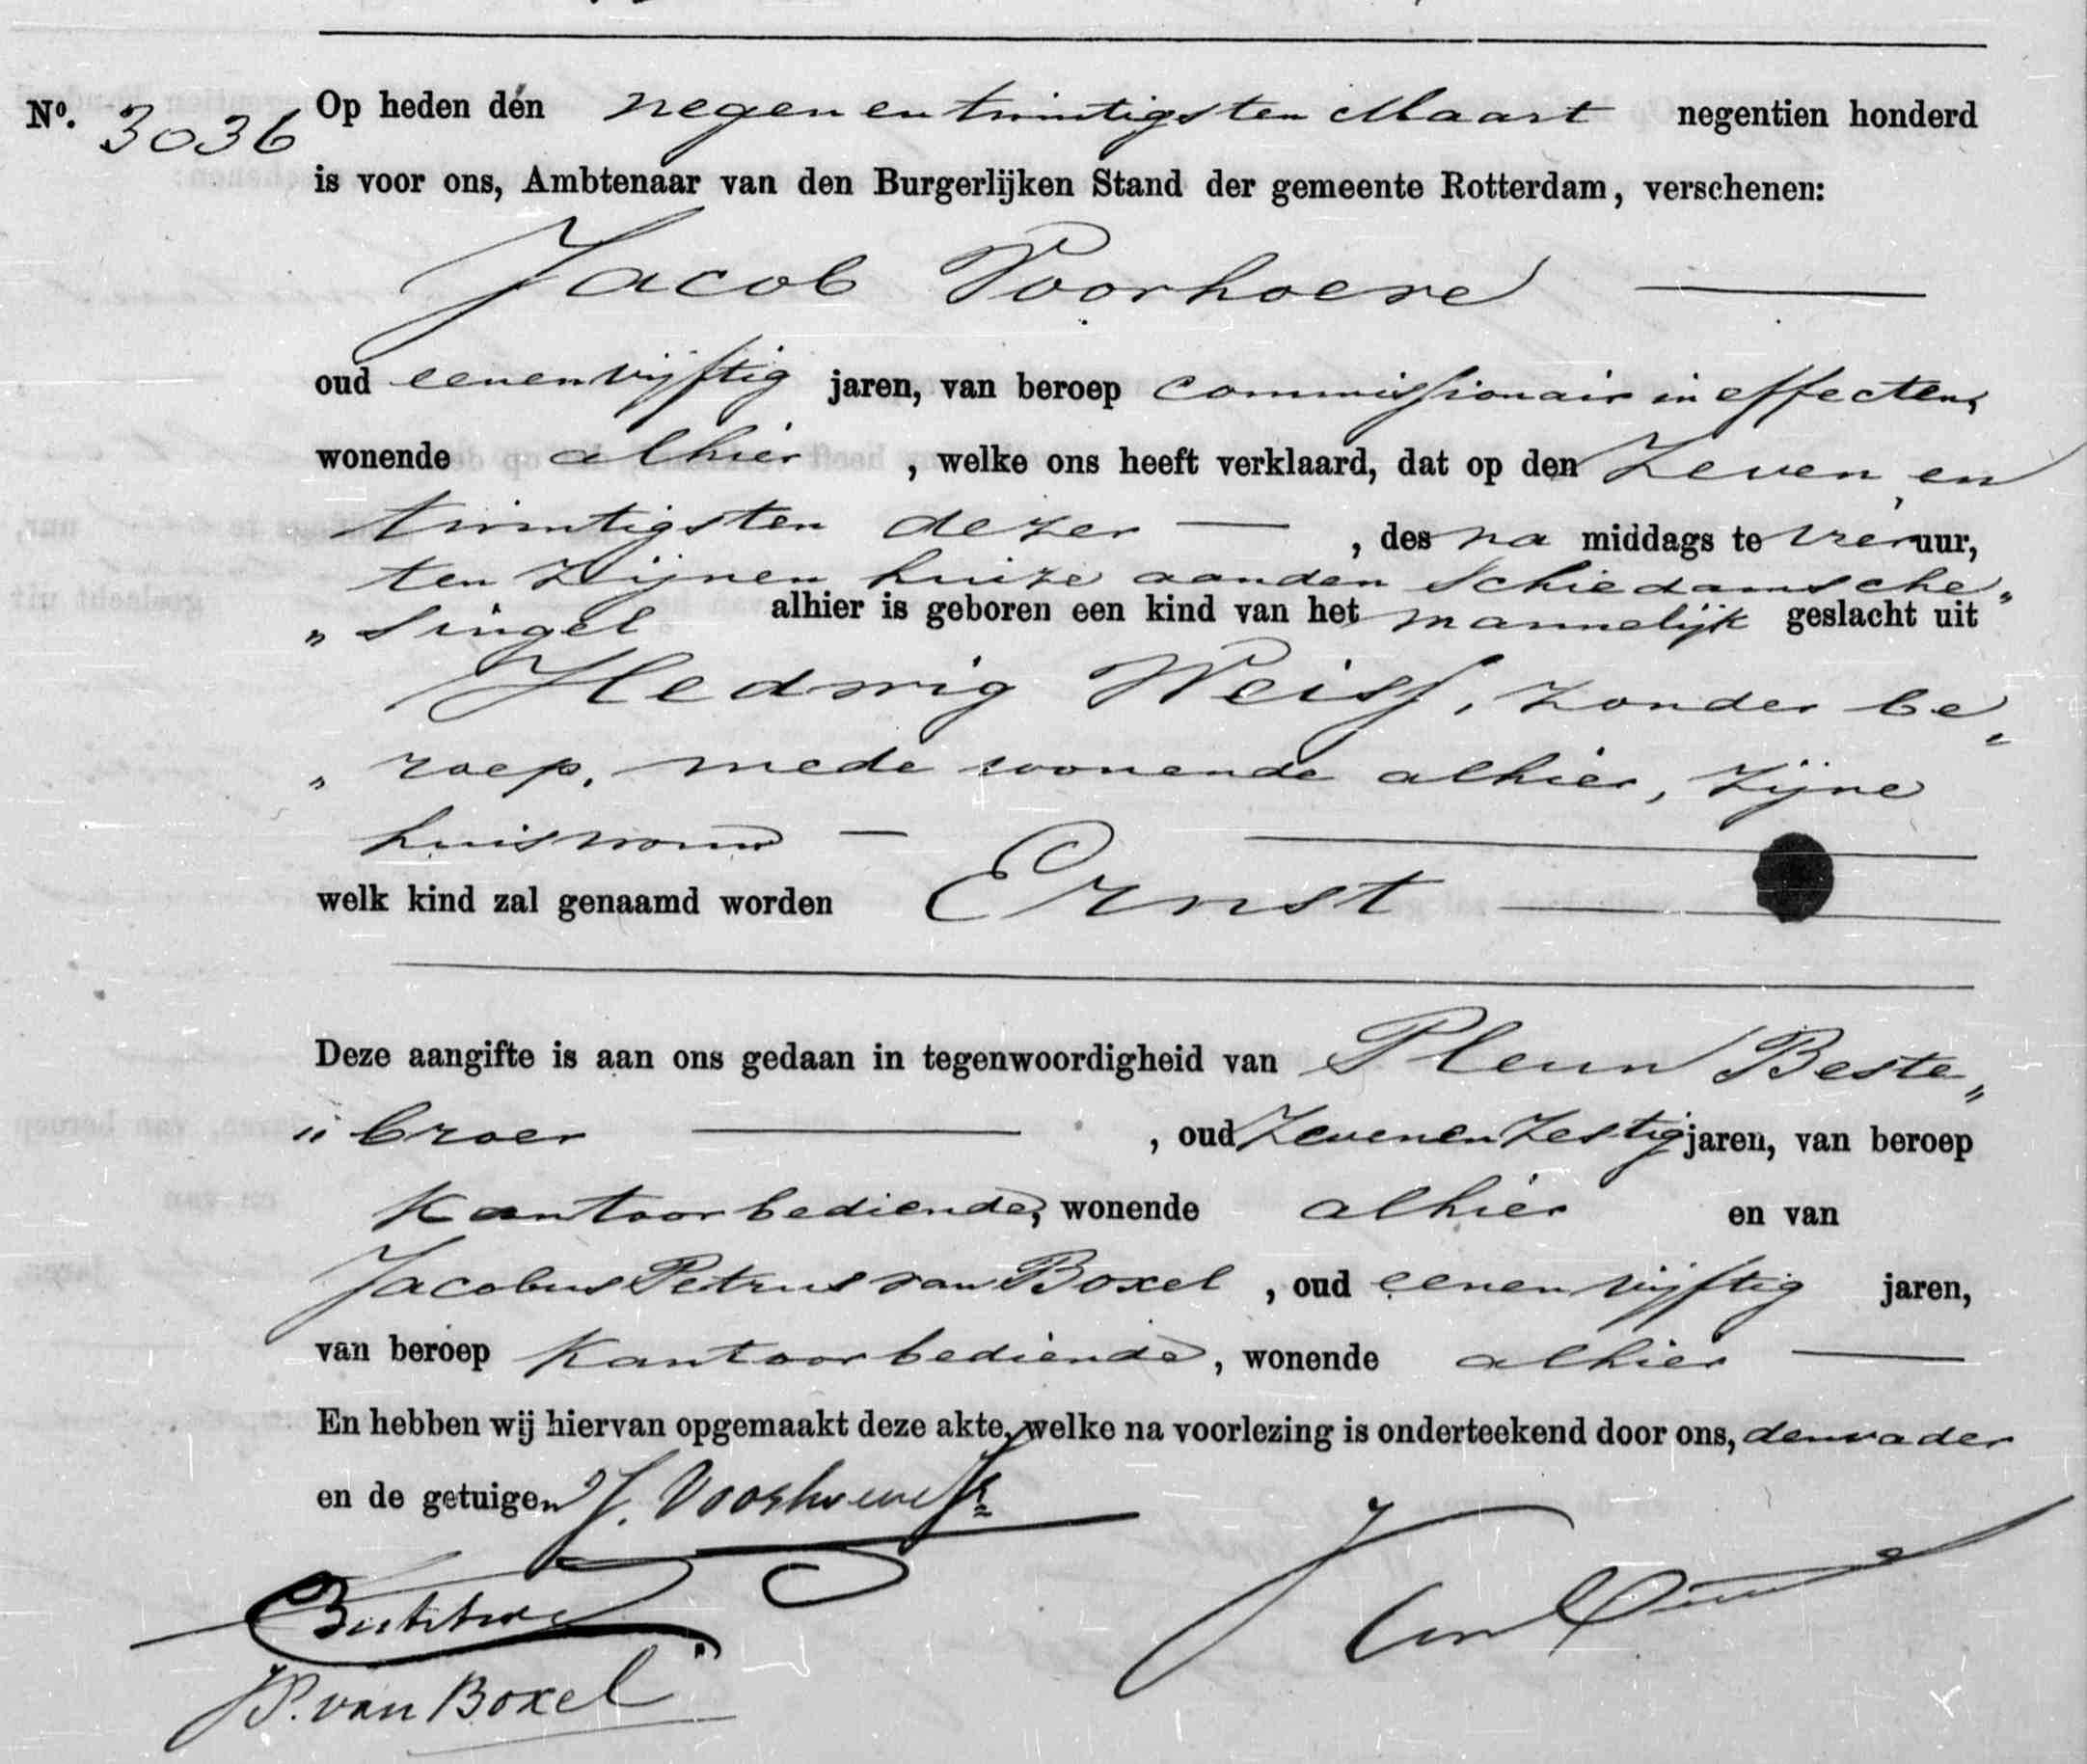 No. 3036 Op heden den negenentwintigsten Maart negentien honderd
is voor ons, Ambtenaar van den Burgerlijken Stand der gemeente Rotterdam, verschenen:
Jacob Voorhoeve
oud eenenvijftig jaren, van beroep commissionair in effecten,
wonende alhier, welke ons heeft verklaard, dat op den zeven en
twintigsten dezer —, des na middags te vier uur,
ten zijnen huize aan den Schiedamsche„
„singel alhier is geboren een kind van het mannelijk geslacht uit
Hedwig Weiss, zonder be„
„roep, mede wonende alhier, zijne
huisvrouw —
welk kind zal genaamd worden Ernst
Deze aangifte is aan ons gedaan in tegenwoordigheid van Pleun Beste„
„broer —, oud zevenenzestig jaren, van beroep
kantoorbediende, wonende alhier en van
Jacobus Petrus van Boxel, oud eenenvijftig jaren,
van beroep kantoorbediende, wonende alhier —
En hebben wij hiervan opgemaakt deze akte, welke na voorlezing is onderteekend door ons, den vader
en de getuigen J. Voorhoeve Jr
JP. van Boxel